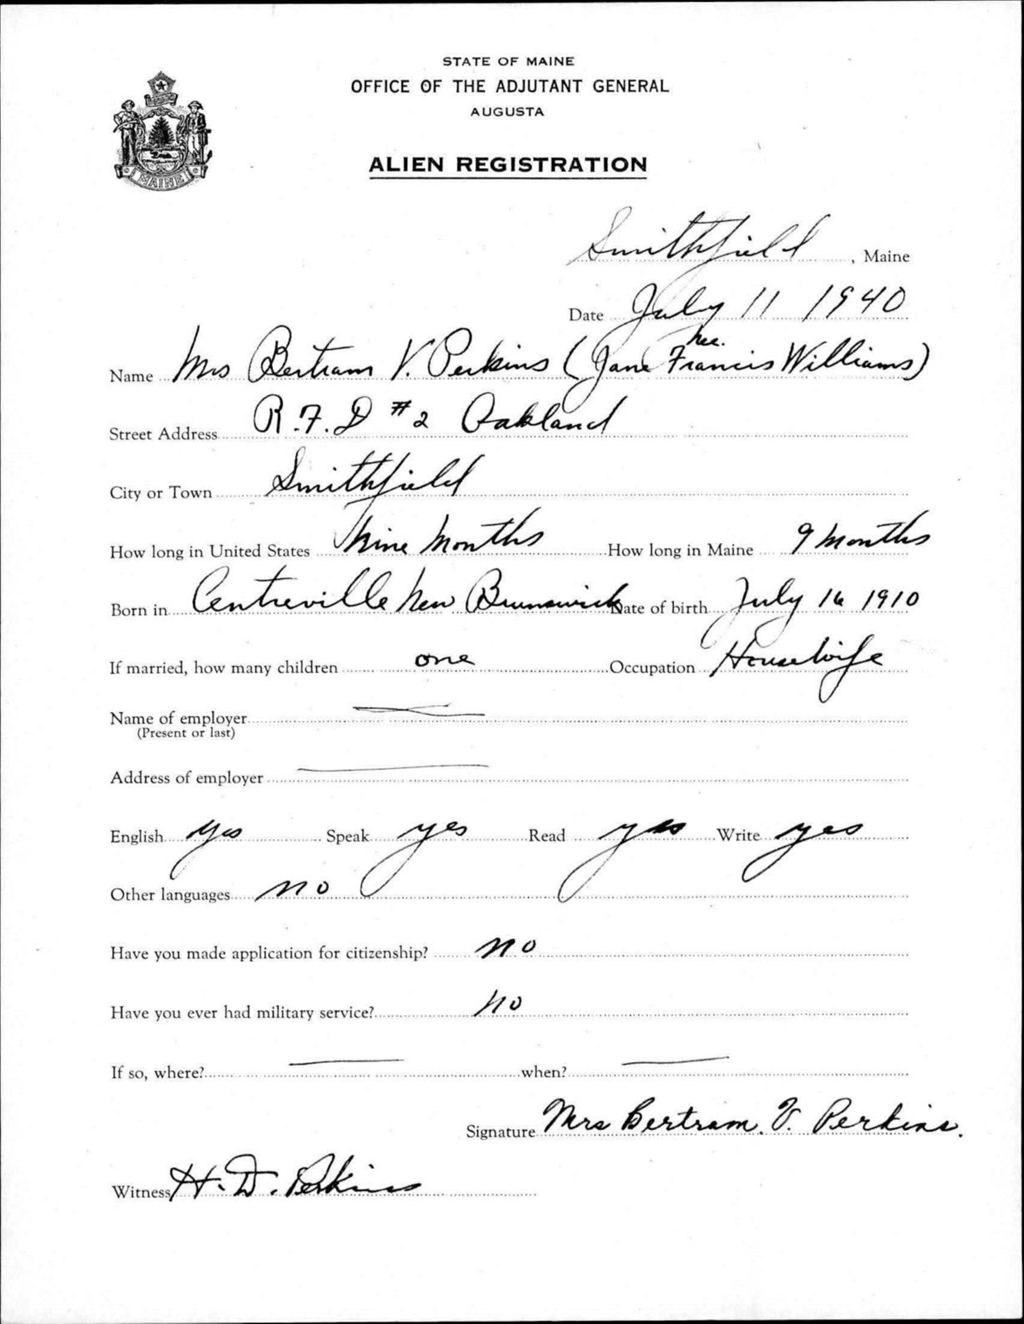 STATE OF MAINE
OFFICE OF THE ADJUTANT GENERAL
AUGUSTA
ALIEN REGISTRATION
MAINE
Smithfield, Maine
Date July 11 1940
nee.
Name Mrs Bertram V. Perkins (Jane Francis Williams)
Street Address R.F.D #2 Oakland
City or Town Smithfield
How long in United States Nine Months How long in Maine 9 Months
Born in Centreville New Brunswick Date of birth July 16 1910
If married, how many children one Occupation Housewife
Name of employer
(Present or last)
Address of employer
English yes Speak yes Read yes Write yes
Other languages no
Have you made application for citizenship? no
Have you ever had military service? no
If so, where? when?
Signature Mrs Bertram. V. Perkins.
Witness H. D. Perkins